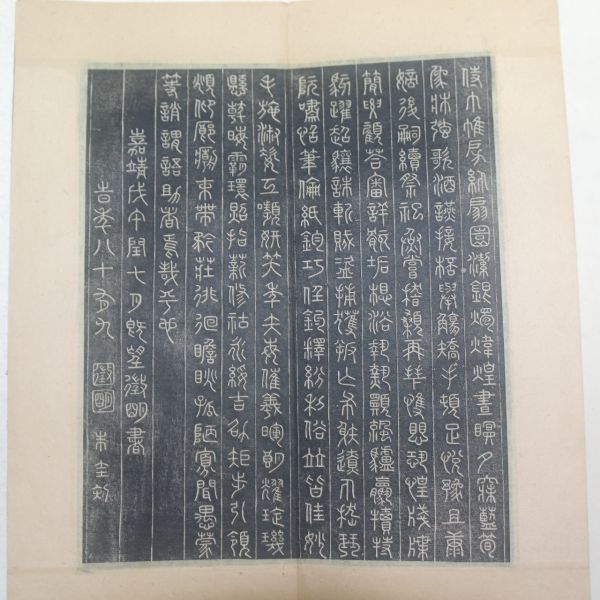 侍巾帷房紈扇圓潔銀燭煒煌晝瞑夕寐藍筍
象牀弦歌酒讌接桮舉觴矯手頓足悅豫且康
嫡後嗣續祭祀烝嘗稽顙再拜悚懼恐惶牋牒
簡要顧答審詳骸垢想浴執熱願涼驢騾犢特
駭躍超驤誅斬賊盜捕獲叛亡布射遼丸嵇琴
阮嘯恬筆倫紙鈞巧任釣釋紛利俗並皆佳妙
毛施淑姿工顰妍笑年矢每催羲暉朗耀琁璣
懸斡晦霸環照指薪修祜永綏吉劭矩步引領
頫仰廊廟束帶矜莊徘徊瞻眺孤陋寡聞愚蒙
等誚謂語助者焉哉乎也
嘉靖戊午閏七月既望徵明書
旹年八十有九
徵明
朱圭刻